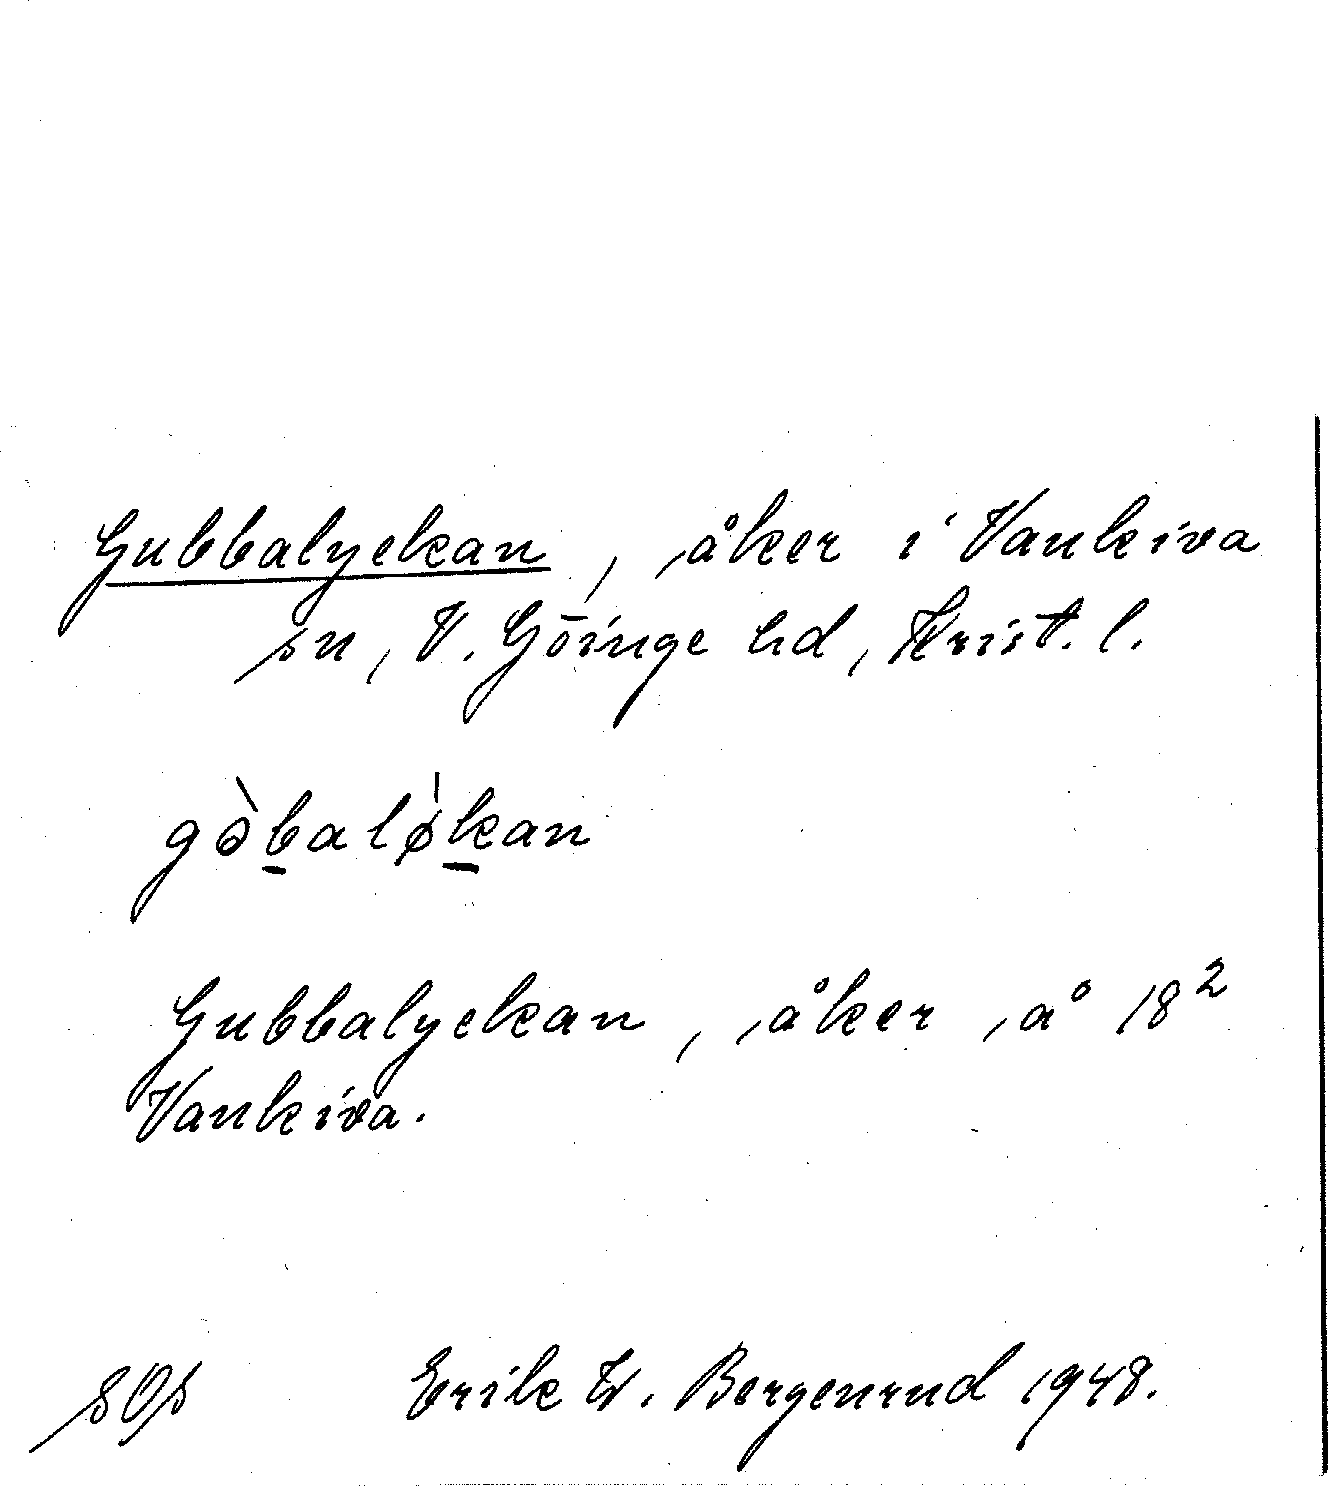 Gubbalyckan, åker i Vankiva
sn, V. Göinge hd, Krist. l.
gə̀balø̍kan
Gubbalyckan, åker å 18²
Vankiva.
Erik W. Bergenrud 1948.